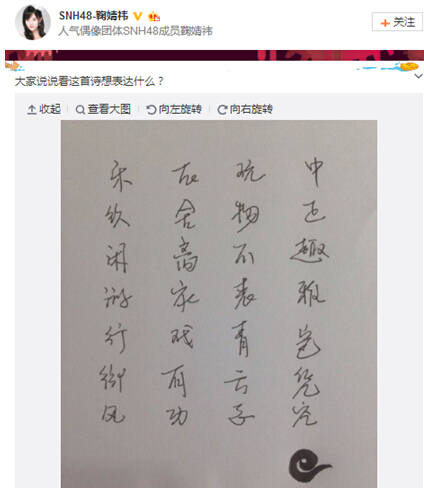 SNH48-鞠婧祎
人气偶像团体SNH48成员鞠婧祎
+ 关注
大家说说看这首诗想表达什么？
收起 查看大图 向左旋转 向右旋转
乐 闲游行 风
舍离家戏有功
玩物不 青云子
中正趣雅岂凭空